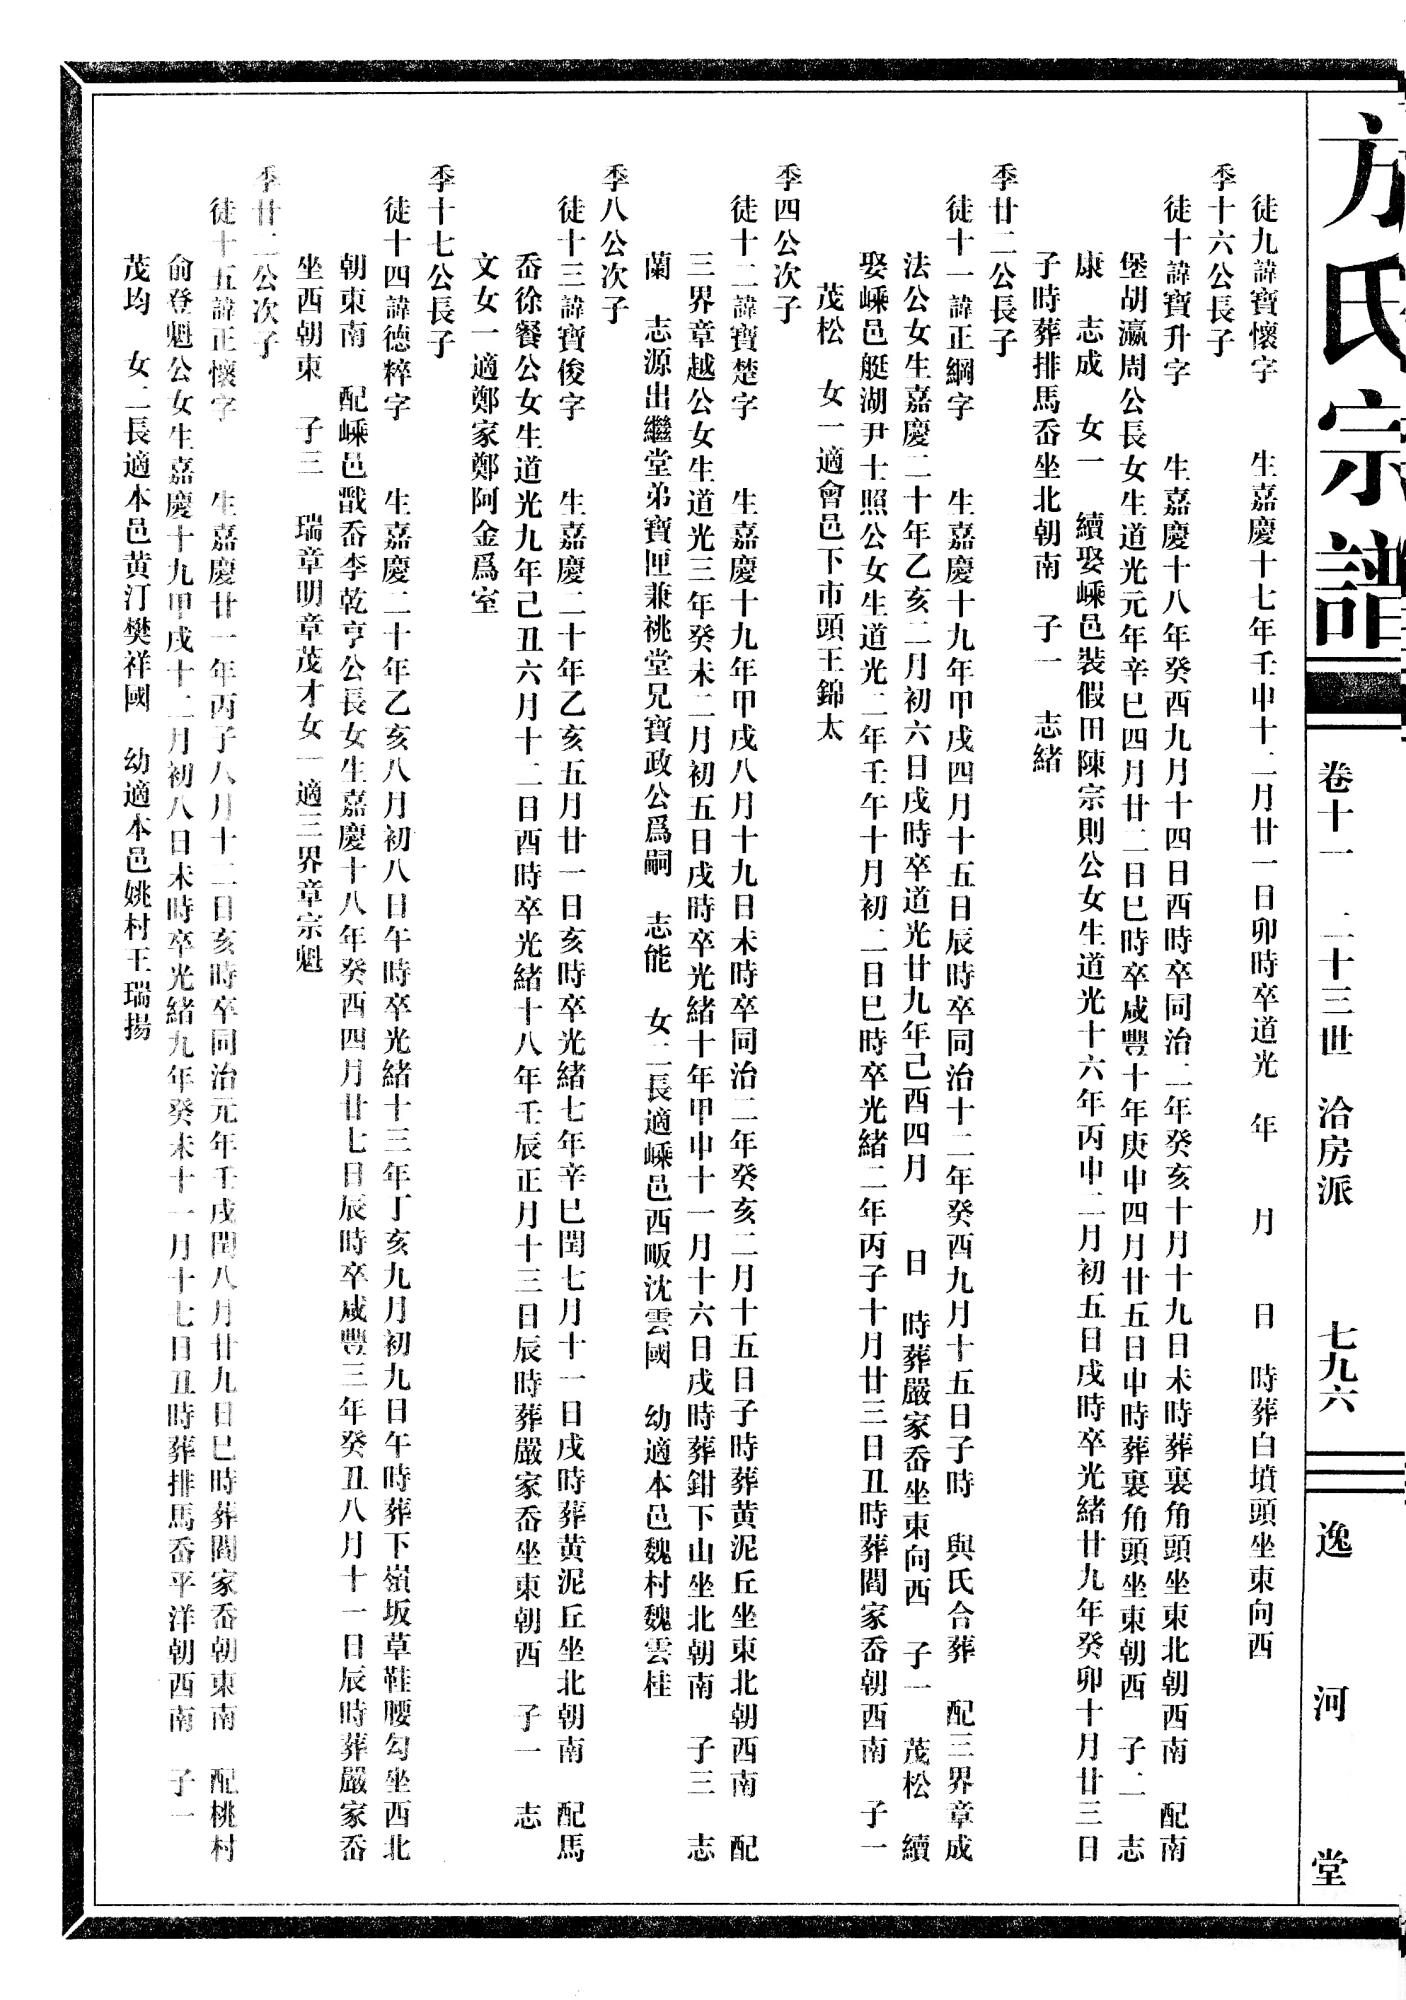 方氏宗譜
卷十一 二十三世 洽房派 七九六
逸河堂
徒九諱寶懷字 生嘉慶十七年壬申十二月廿一日卯時卒道光 年 月 日 時葬白墳頭坐東向西
季十六公長子
徒十諱寶升字 生嘉慶十八年癸酉九月十四日酉時卒同治二年癸亥十月十九日未時葬裏角頭坐東北朝西南 配南
堡胡瀛周公長女生道光元年辛巳四月廿二日巳時卒咸豐十年庚申四月廿五日申時葬裏角頭坐東朝西 子二 志
康 志成 女一 續娶嵊邑裝假田陳宗則公女生道光十六年丙申二月初五日戌時卒光緒廿九年癸卯十月廿三日
子時葬排馬岙坐北朝南 子一 志緒
季廿二公長子
徒十一諱正綱字 生嘉慶十九年甲戌四月十五日辰時卒同治十二年癸酉九月十五日子時 與氏合葬 配三界章成
法公女生嘉慶二十年乙亥二月初六日戌時卒道光廿九年己酉四月 日 時葬嚴家岙坐東向西 子一 茂松 續
娶嵊邑艇湖尹士照公女生道光二年壬午十月初二日巳時卒光緒二年丙子十月廿三日丑時葬閻家岙朝西南 子一
茂松 女一適會邑下市頭王錦太
季四公次子
徒十二諱寶楚字 生嘉慶十九年甲戌八月十九日未時卒同治二年癸亥二月十五日子時葬黄泥丘坐東北朝西南 配
三界章越公女生道光三年癸未二月初五日戌時卒光緒十年甲申十一月十六日戌時葬鉗下山坐北朝南 子三 志
蘭 志源出繼堂弟寶匣兼祧堂兄寶政公爲嗣 志能 女二長適嵊邑西畈沈雲國 幼適本邑魏村魏雲桂
季八公次子
徒十三諱寶俊字 生嘉慶二十年乙亥五月廿一日亥時卒光緒七年辛巳閏七月十一日戌時葬黄泥丘坐北朝南 配馬
岙徐餐公女生道光九年己丑六月十二日酉時卒光緒十八年壬辰正月十三日辰時葬嚴家岙坐東朝西 子一 志
文女一適鄭家鄭阿金爲室
季十七公長子
徒十四諱德粹字 生嘉慶二十年乙亥八月初八日午時卒光緒十三年丁亥九月初九日午時葬下嶺坂草鞋腰勾坐西北
朝東南 配嵊邑戬岙李乾亨公長女生嘉慶十八年癸酉四月廿七日辰時卒咸豐三年癸丑八月十一日辰時葬嚴家岙
坐西朝東 子三 瑞章明章茂才女一適三界章宗魁
季廿二公次子
徒十五諱正懷字 生嘉慶廿一年丙子八月十二日亥時卒同治元年壬戌閏八月廿九日巳時葬閻家岙朝東南 配桃村
俞登魁公女生嘉慶十九甲戌十二月初八日未時卒光緒九年癸未十一月十七日丑時葬排馬岙平洋朝西南 子一
茂均 女二長適本邑黄汀樊祥國 幼適本邑姚村王瑞揚